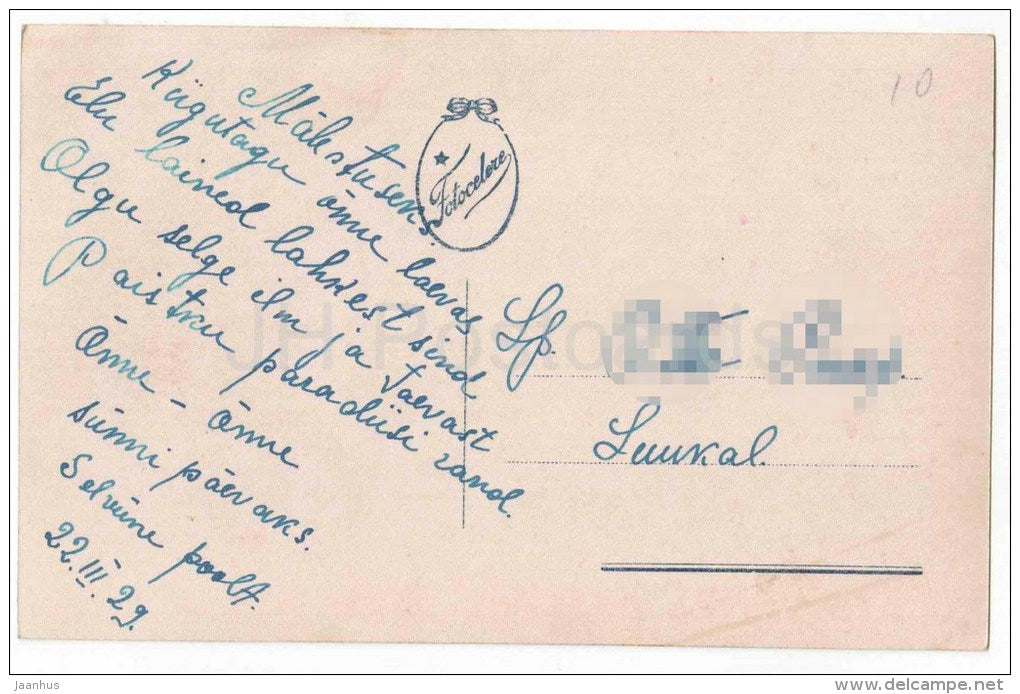 Mälestuseks.
Kiigutagu õnne laevas
Elu lained lahkest sind
Olgu selge ilm ja taevast
Paistku paradiisi rand.
Õnne - õnne
sünni päevaks.
Selviine poolt.
22.III.29.
Fotocelere
10
Lp.
Luukal.
JH Postcards
jaanhus
delcampe.net